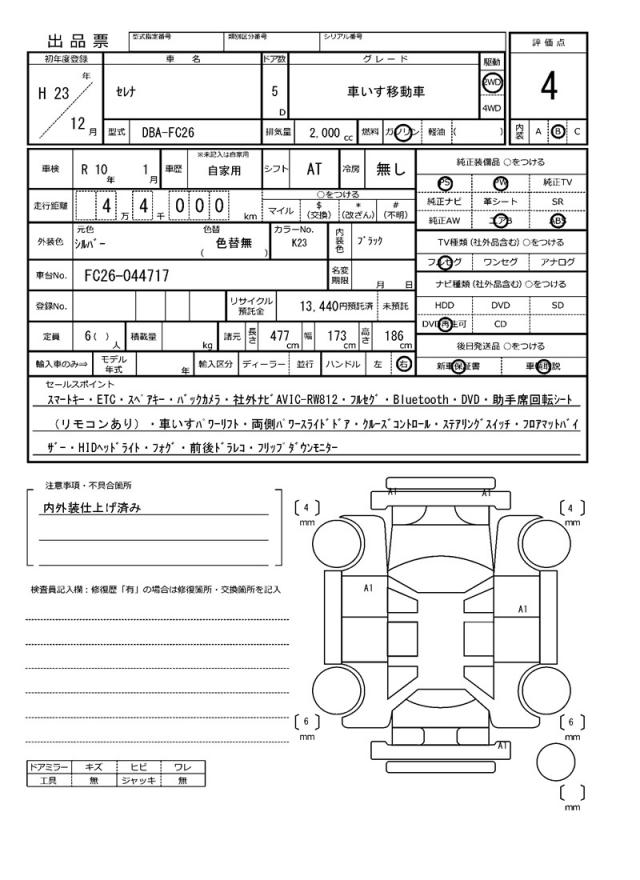 出品票 型式指定番号 類別区分番号 シリアル番号 評価点
初年度登録 車名 ドア数 グレード 駆動
H 23 年 12 月 セレナ 5 D 車いす移動車 2WD 4WD 4
型式 DBA-FC26 排気量 2,000 cc 燃料 ガソリン 軽油 ( ) 内装 A B C
車検 R 10 年 1 月 車歴 ※未記入は自家用 自家用 シフト AT 冷房 無し
純正装備品 ○をつける
PS PW 純正TV
純正ナビ 革シート SR
純正AW エアB ABS
走行距離 4 万 4 千 0 0 0 km ○をつける
マイル $ (交換) * (改ざん) # (不明)
外装色 元色 シルバー 色替 ( 色替無 ) カラーNo. K23 内装色 ブラック
TV種類 (社外品含む) ○をつける
フルセグ ワンセグ アナログ
車台No. FC26-044717 名変期限 月 日
ナビ種類 (社外品含む) ○をつける
HDD DVD SD
DVD再生可 CD
登録No. リサイクル預託金 13,440円預託済 未預託
定員 6( ) 人 積載量 kg 諸元 長さ 477 cm 幅 173 cm 高さ 186 cm
後日発送品 ○をつける
新車保証書 車輌取説
輸入車のみ⇒ モデル年式 年 輸入区分 ディーラー 並行 ハンドル 左 右
セールスポイント
スマートキー・ETC・スペアキー・バックカメラ・社外ナビAVIC-RW812・フルセグ・Bluetooth・DVD・助手席回転シート
(リモコンあり)・車いすパワーリフト・両側パワースライドドア・クルーズコントロール・ステアリングスイッチ・フロアマットバイ
ザー・HIDヘッドライト・フォグ・前後ドラレコ・フリップダウンモニター
注意事項・不具合箇所
内外装仕上げ済み
検査員記入欄:修復歴「有」の場合は修復箇所・交換箇所を記入
A1 A1
4 mm 4 mm
A1 A1
6 mm 6 mm
A1
mm
ドアミラー キズ ヒビ ワレ
工具 無 ジャッキ 無